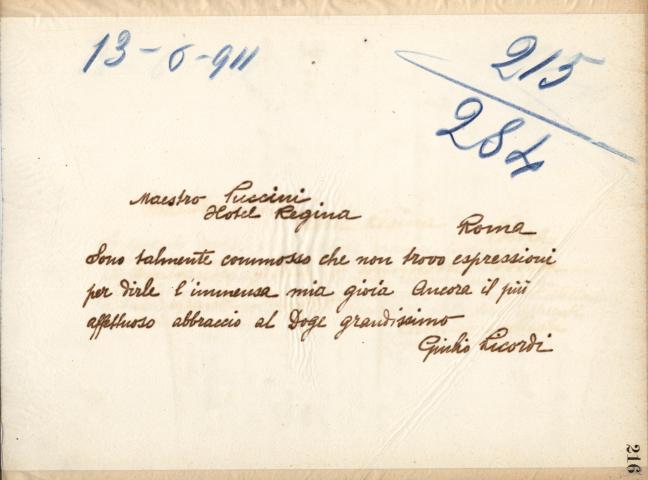 13-6-911
215
284
Maestro Puccini
Hotel Regina
Roma
Sono talmente commosso che non trovo espressioni
per dirle l'immensa mia gioia Ancora il più
affettuoso abbraccio al Doge grandissimo
Giulio Ricordi
216